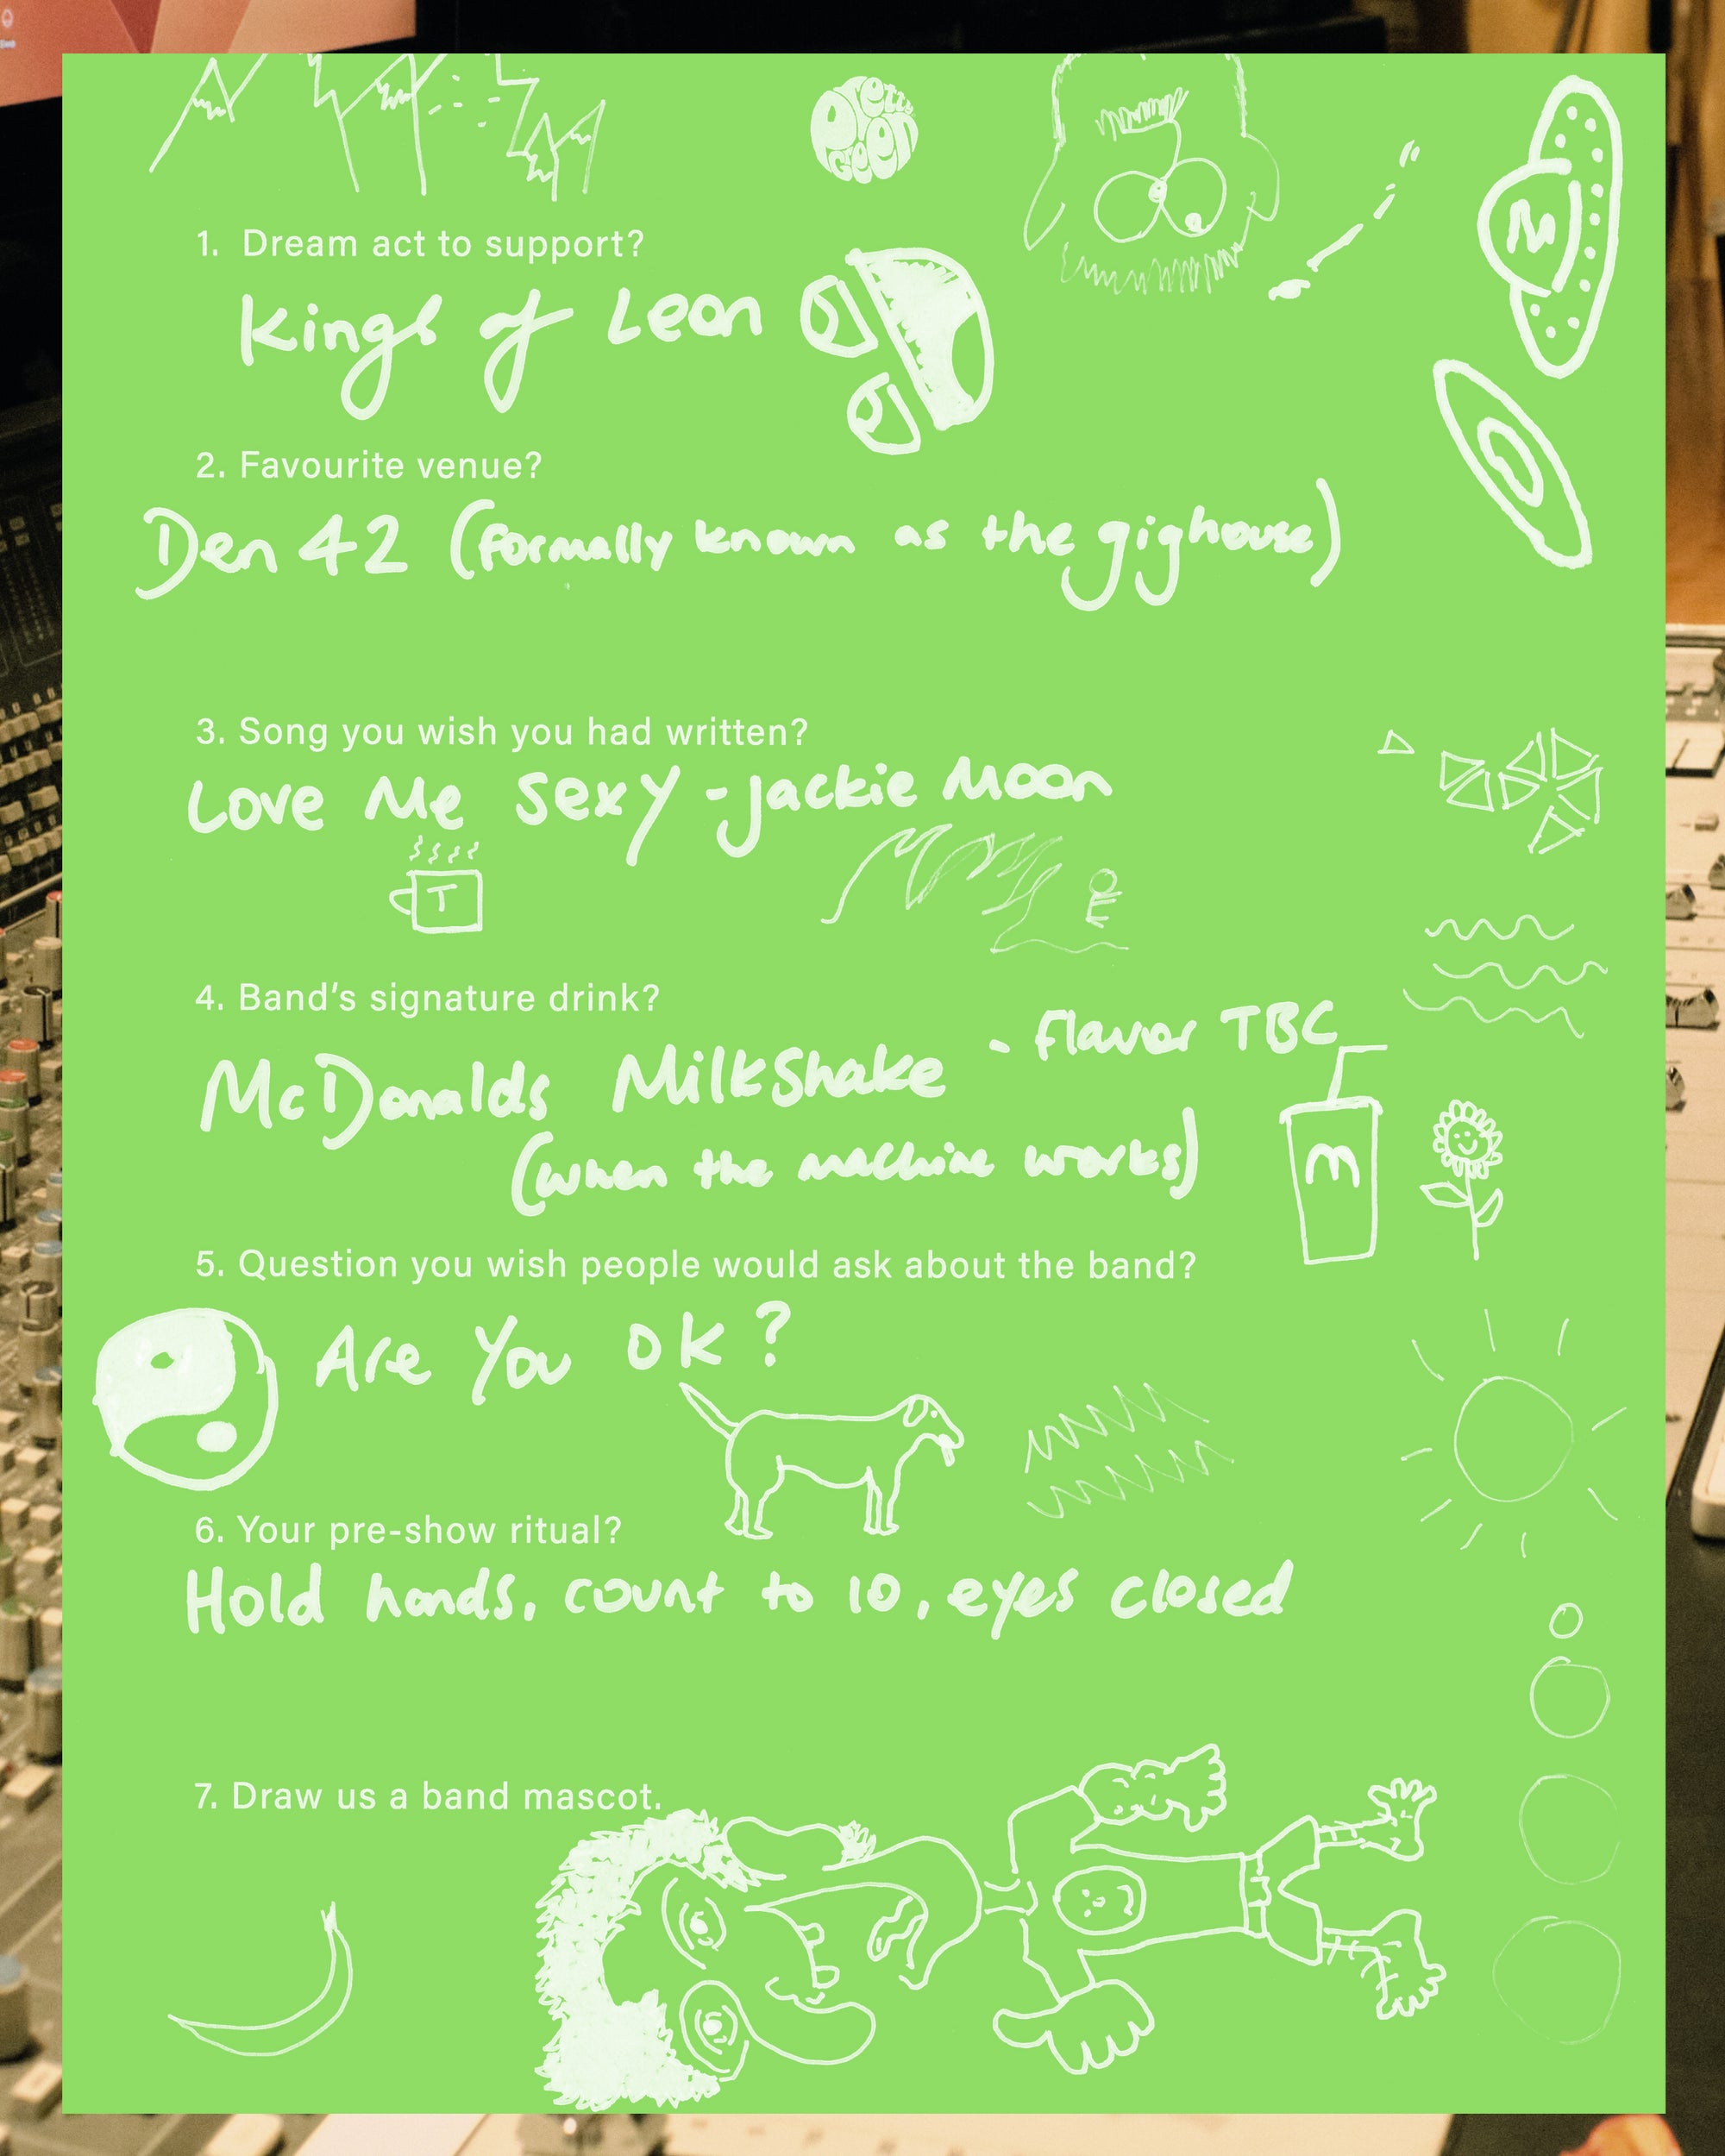 Pretty Green
1. Dream act to support?
Kings of Leon
M
2. Favourite venue?
Den 42 (formally known as the gighouse)
3. Song you wish you had written?
Love Me Sexy - Jackie Moon
T
4. Band's signature drink?
McDonalds MilkShake - flavor TBC
(when the machine works)
m
5. Question you wish people would ask about the band?
Are You OK?
6. Your pre-show ritual?
Hold hands, count to 10, eyes closed
7. Draw us a band mascot.